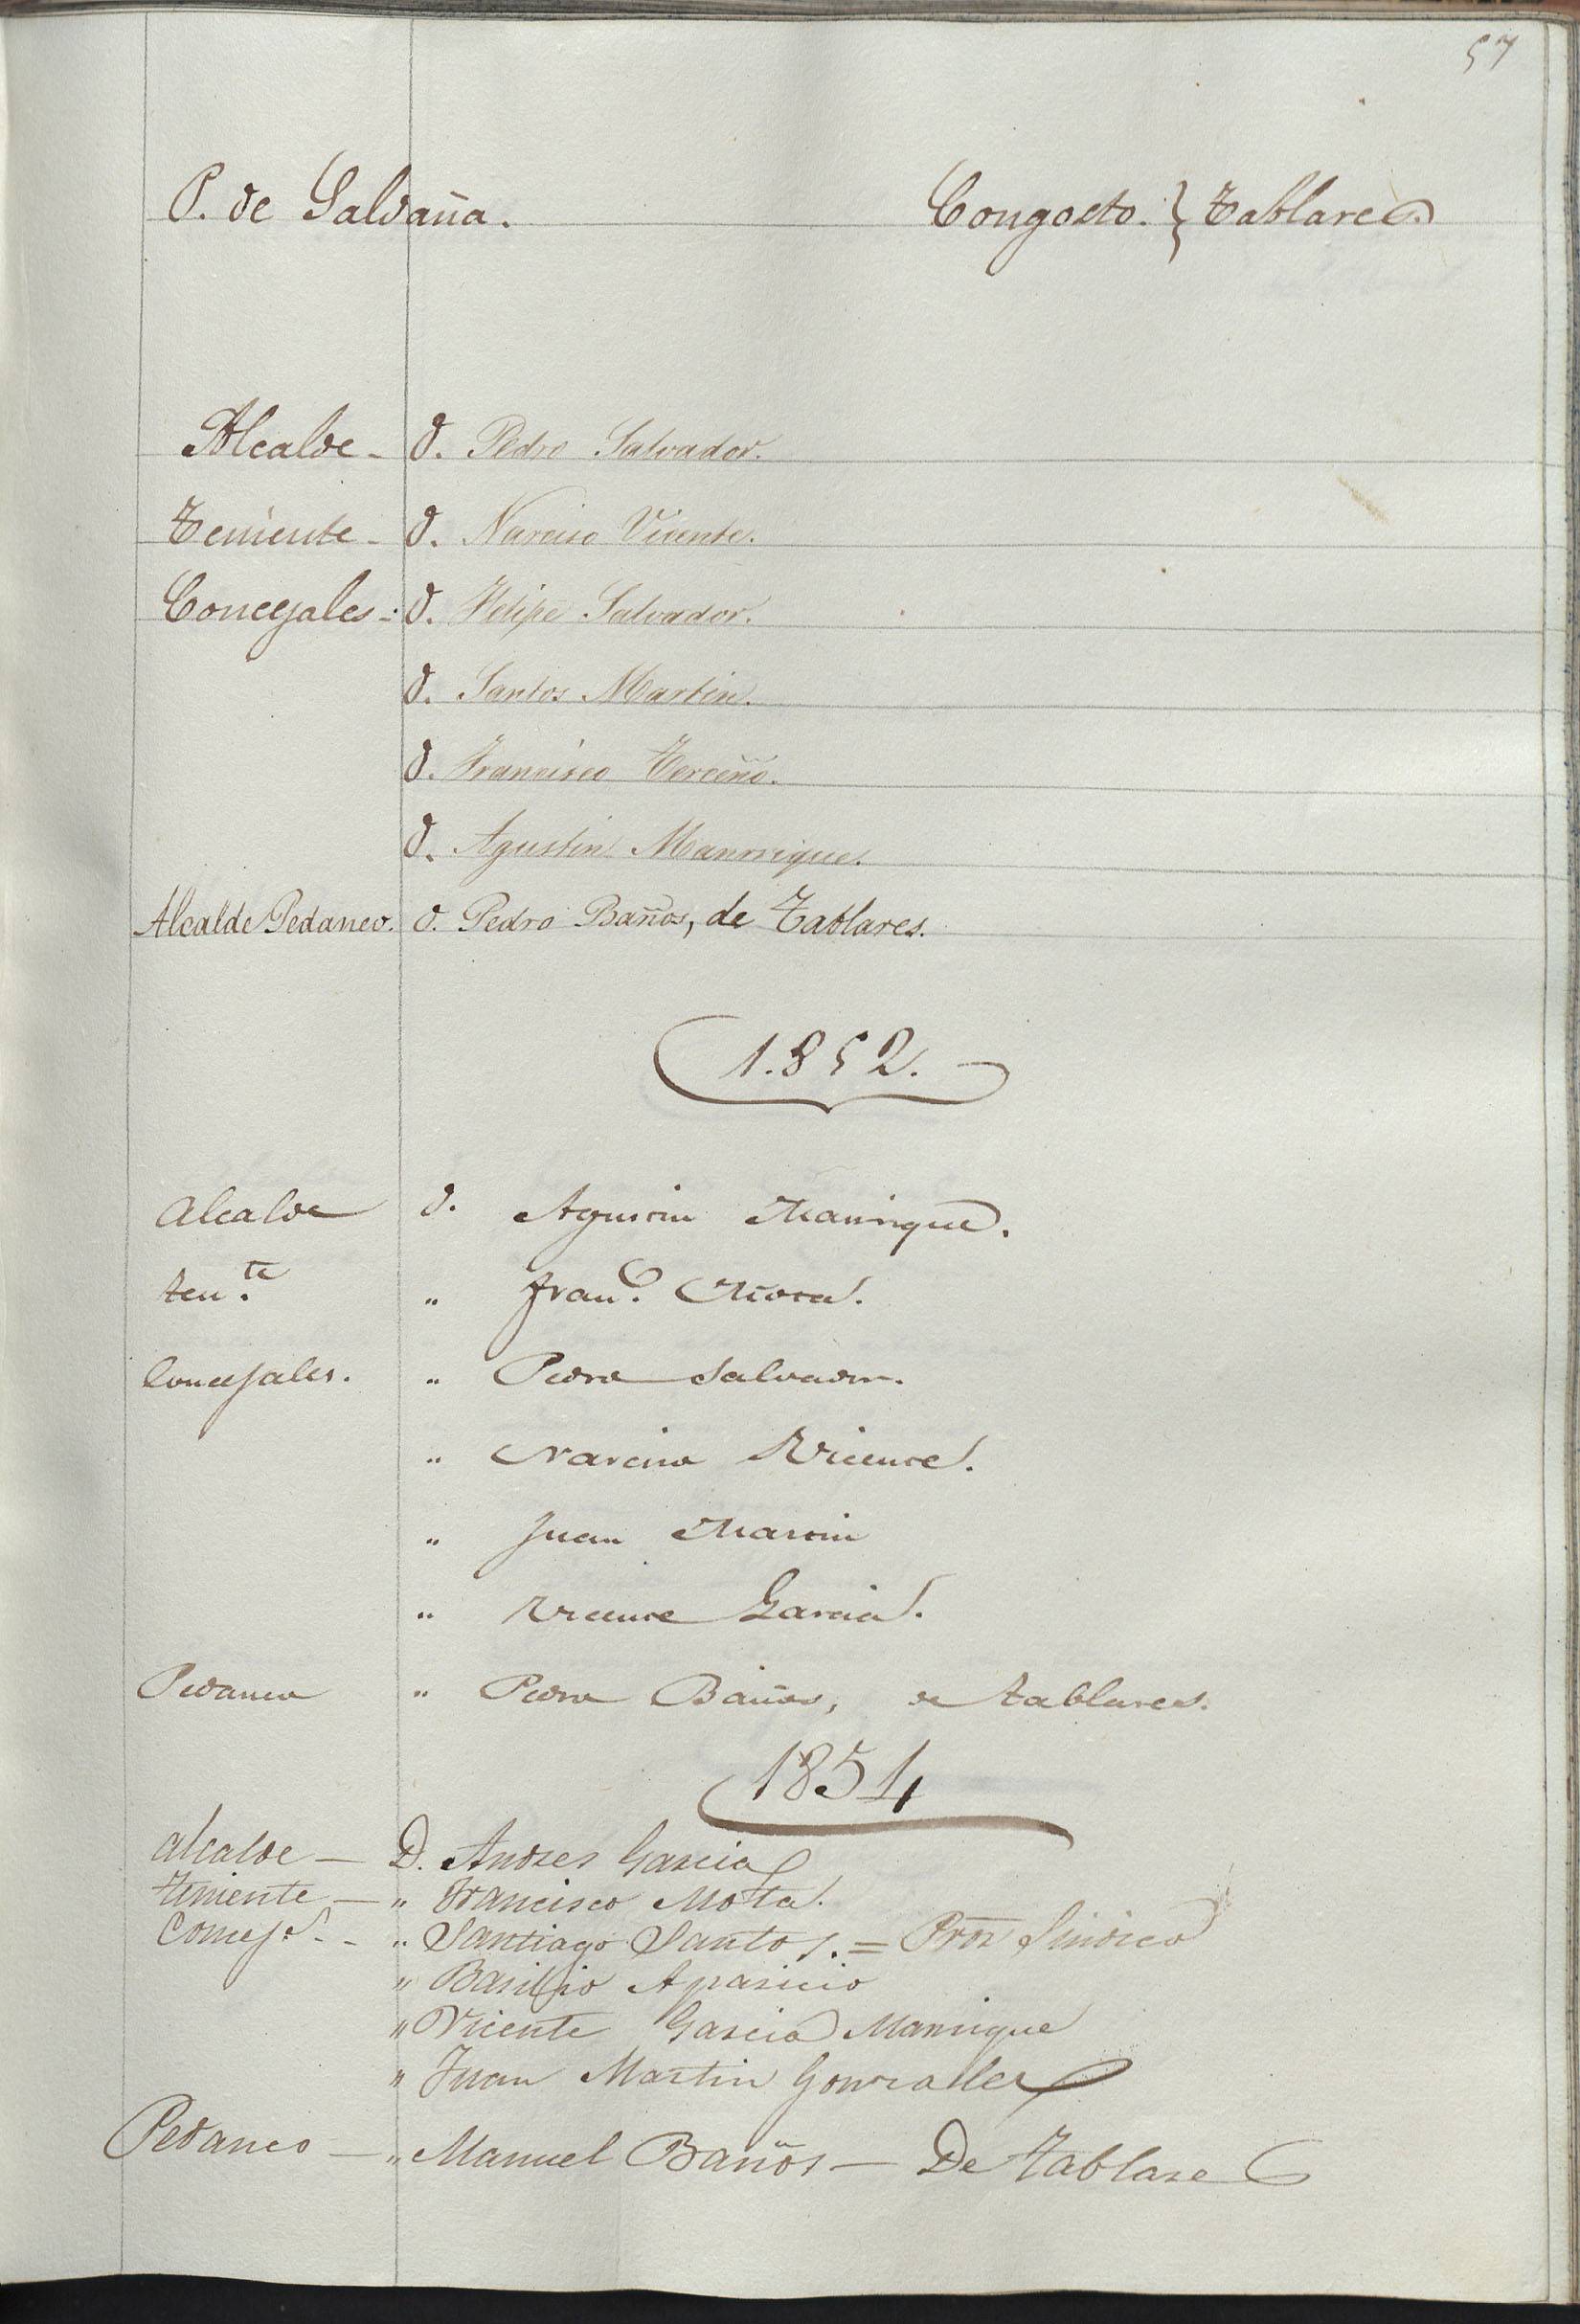 57
P. de Saldaña. Congosto. } Tablares.
Alcalde - D. Pedro Salvador.
Teniente - D. Narciso Vicente.
Concejales -: D. Felipe Salvador.
D. Santos Martin.
D. Francisco Terceño.
D. Agustin Manrrique.
Alcalde Pedaneo. D. Pedro Baños, de Tablares.
1.852.
Alcalde D. Agustin Manrique.
Ten.te " Fran.co Mota.
Concejales. " Pedro Salvador.
" Narciso Vicente.
" Juan Martin
" Vicente Garcia.
Pedaneo " Pedro Baños, de tablares.
1854
Alcalde — D. Andres Garcia
Teniente — " Francisco Mota.
Concej.s - - " Santiago Santos. = Pror Sindico
" Basilio Aparicio
" Vicente Garcia Manrique
" Juan Martin Gonzalez
Pedaneo — " Manuel Baños — De Tablares